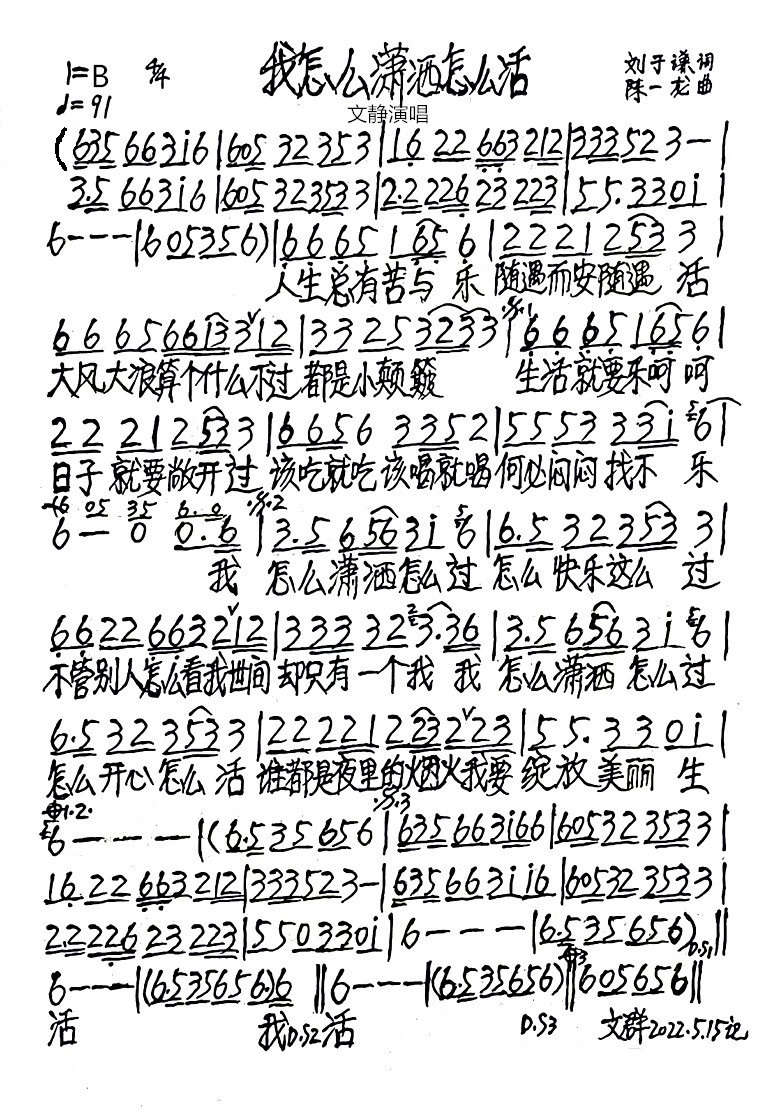 我怎么潇洒怎么活
1=B 4/4
♩=91
刘子谦词
陈一龙曲
文静演唱
(635 663i6|605 32 353|16 22 663212|333523-|
3.5 663i6|605323533|2.2 226 23 223|55.330i|
6---|605356)|6665 165 6|222125 33|
人生总有苦与 乐 随遇而安随遇 活
666566i3312|33253233|6665 1656|
大风大浪算个什么不过 都是小颠簸 生活就要乐呵 呵
22 212533|6656 3352|5553 33i 6|
日子 就要敞开过 该吃就吃该喝就喝何必闷闷找不 乐
6- 0 0.6|3.5 65631 6|6.5 32353 3|
我 怎么潇洒怎么过 怎么 快乐这么 过
6622663212|3333 23.36|3.5 6563i 6|
不管别人怎么看我世间 却只有一个我 我 怎么潇洒 怎么过
6.5 323533|222212232223|55.330i|
怎么 开心 怎么 活 谁都是夜里的烟火我要 绽放 美丽 生
6---|(6.535656|635663i66|605323533|
16.22 663212|333523-|635663ii6|605323533|
2.222623223|550330i|6---|6.535656)D.S1||
6---|(6.535656.)6||6---|(6.535656)||605656||
活 我D.S2活 D.S3 文群2022.5.15记